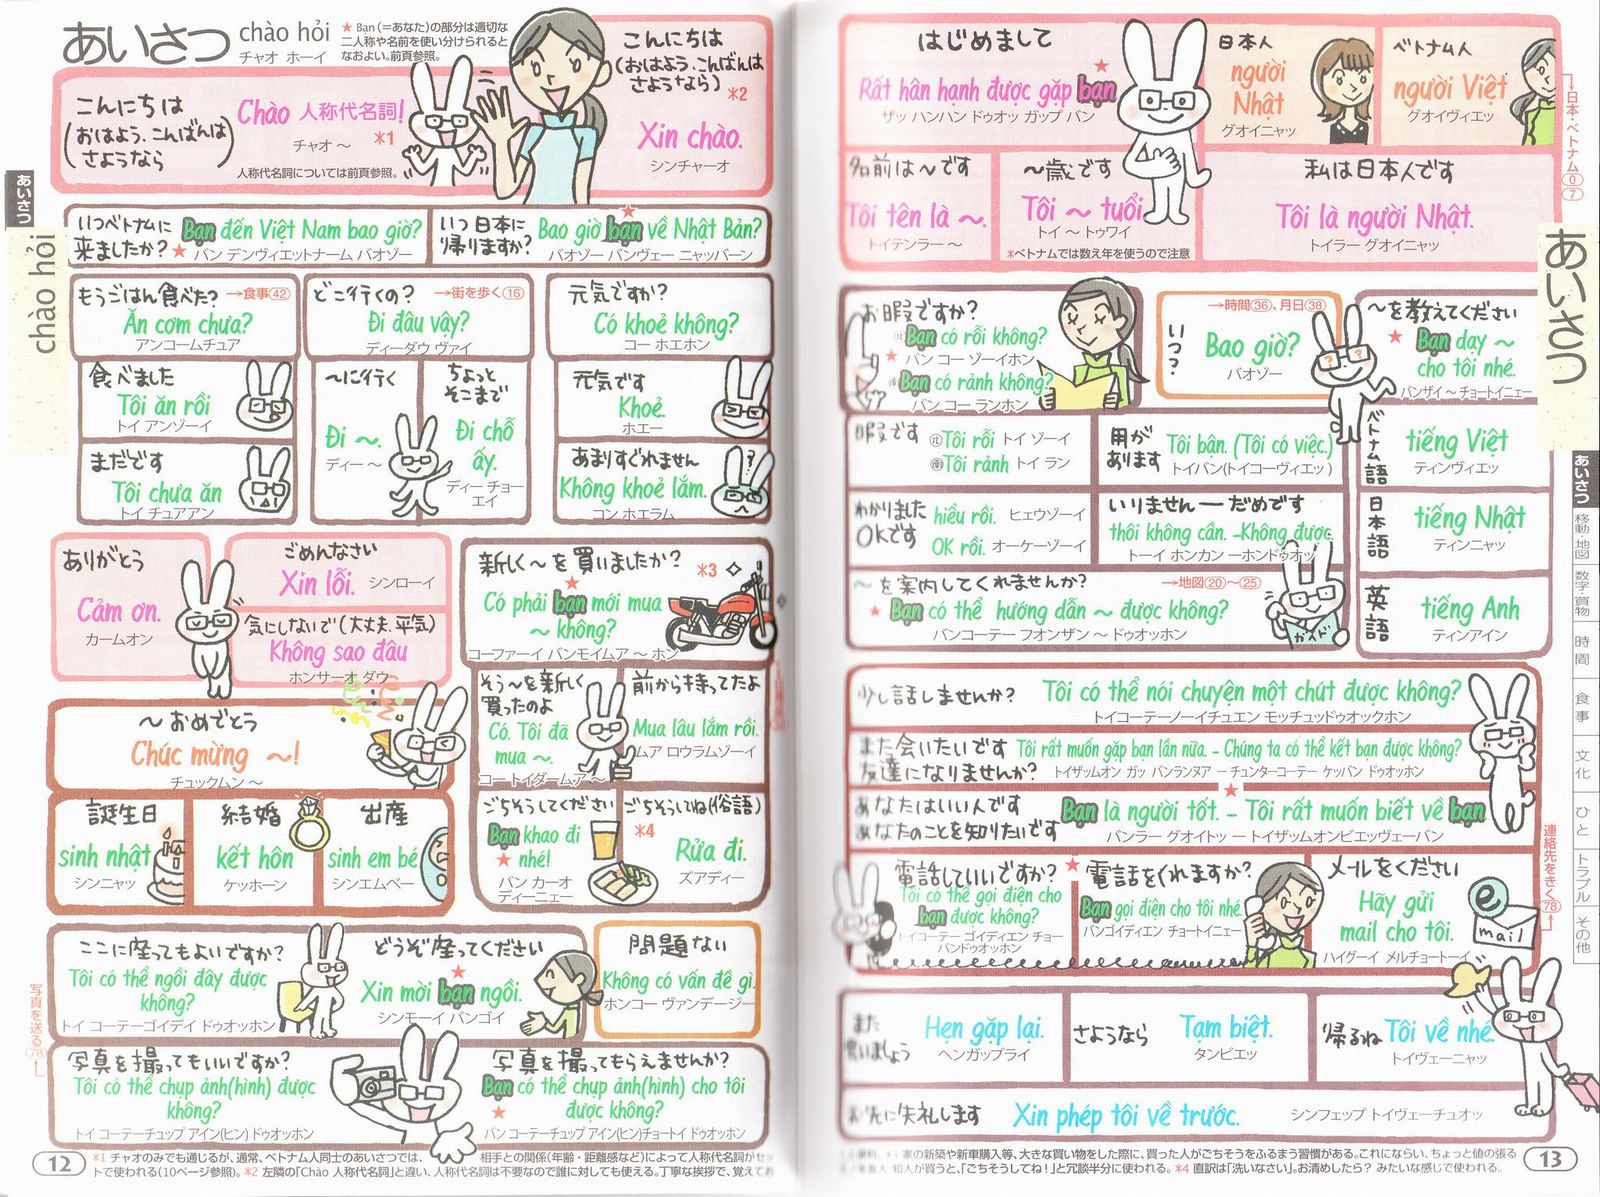 あいさつ
chào hỏi
チャオ ホーイ
★ Bạn(=あなた)の部分は適切な
二人称や名前を使い分けられると
なおよい。前頁参照。
こんにちは
(おはよう、こんばんは
さようなら)
Chào 人称代名詞!
チャオ 〜
*1
人称代名詞については前頁参照。
こんにちは
(おはよう、こんばんは
さようなら)
*2
Xin chào.
シンチャーオ
あいさつ
chào hỏi
いつベトナムに
来ましたか?
★
Bạn đến Việt Nam bao giờ?
バン デンヴィエットナーム バオゾー
いつ日本に
帰りますか?
★
Bao giờ bạn về Nhật Bản?
バオゾー バンヴェー ニャッバーン
もうごはん食べた?
→食事㊷
Ăn cơm chưa?
アンコームチュア
食べました
Tôi ăn rồi
トイ アンゾーイ
まだです
Tôi chưa ăn
トイ チュアアン
どこ行くの?
→街を歩く⑯
Đi đâu vậy?
ディーダウ ヴァイ
〜に行く
Đi 〜.
ディー 〜
ちょっと
そこまで
Đi chỗ
ấy.
ディー チョー
エイ
元気ですか?
Có khoẻ không?
コー ホエホン
元気です
Khoẻ.
ホエー
あまりすぐれません
Không khoẻ lắm.
コン ホエラム
ありがとう
Cảm ơn.
カームオン
ごめんなさい
Xin lỗi.
シンローイ
気にしないで(大丈夫、平気)
Không sao đâu
ホンサーオ ダウ
〜おめでとう
Chúc mừng 〜!
チュックムン 〜
誕生日
sinh nhật
シンニャッ
結婚
kết hôn
ケッホーン
出産
sinh em bé
シンエムベー
新しく〜を買いましたか?
★
*3
Có phải bạn mới mua
〜 không?
コーファーイ バンモイムア 〜 ホン
そう〜を新しく
買ったのよ
Có. Tôi đã
mua 〜.
コー トイダームア 〜
前から持ってたよ
Mua lâu lắm rồi.
ムア ロウラムゾーイ
ごちそうしてください
Bạn khao đi
★ nhé!
バン カーオ
ディーニェー
ごちそうしてね(俗語)
*4
Rửa đi.
ズアディー
ここに座ってもよいですか?
Tôi có thể ngồi đây được
không?
トイ コーテーゴイデイ ドゥオッホン
どうぞ座ってください
★
Xin mời bạn ngồi.
シンモーイ バンゴイ
問題ない
Không có vấn đề gì.
ホンコー ヴァンデージー
写真を送る㊆→
写真を撮ってもいいですか?
Tôi có thể chụp ảnh(hình) được
không?
トイ コーテーチュップ アイン(ヒン) ドゥオッホン
写真を撮ってもらえませんか?
Bạn có thể chụp ảnh(hình) cho tôi
★ được không?
バン コーテーチュップ アイン(ヒン)チョートイ ドゥオッホン
12
*1 チャオのみでも通じるが、通常、ベトナム人同士のあいさつでは、相手との関係(年齢・距離感など)によって人称代名詞がセッ
トで使われる(10ページ参照)。*2 左隣の「Chào 人称代名詞」と違い、人称代名詞は不要なので誰に対しても使える。丁寧な挨拶で、覚えてお
はじめまして
★
Rất hân hạnh được gặp bạn
ザッ ハンハン ドゥオッ ガップ バン
日本人
người
Nhật
グオイニャッ
ベトナム人
người Việt
グオイヴィエッ
→日本・ベトナム
⓪
⑦
名前は〜です
Tôi tên là 〜.
トイテンラー 〜
〜歳です
Tôi 〜 tuổi
トイ 〜 トゥワイ
*ベトナムでは数え年を使うので注意
私は日本人です
Tôi là người Nhật.
トイラー グオイニャッ
お暇ですか?
㊗
Bạn có rỗi không?
★ バン コー ゾーイホン
Bạn có rảnh không?
バン コー ランホン
→時間㊱、月日㊳
いつ?
Bao giờ?
バオゾー
〜を教えてください
★ Bạn dạy 〜
cho tôi nhé.
バンザイ 〜 チョートイニェー
暇です
Tôi rỗi トイ ゾーイ
Tôi rảnh トイ ラン
用が
あります
Tôi bận. (Tôi có việc.)
トイバン(トイコーヴィエッ)
ベトナム語
tiếng Việt
ティンヴィエッ
わかりました
OKです
hiểu rồi. ヒェウゾーイ
OK rồi. オーケーゾーイ
いりません — だめです
thôi không cần. –Không được.
トーイ ホンカン ーホンドゥオッ
日本語
tiếng Nhật
ティンニャッ
〜を案内してくれませんか?
→地図⑳〜㉕
★ Bạn có thể hướng dẫn 〜 được không?
バンコーテー フオンザン 〜 ドゥオッホン
ガイド
英語
tiếng Anh
ティンアイン
少し話しませんか?
Tôi có thể nói chuyện một chút được không?
トイコーテーノーイチュエン モッチュッドゥオックホン
また会いたいです
友達になりませんか?
Tôi rất muốn gặp bạn lần nữa. – Chúng ta có thể kết bạn được không?
トイザッムオン ガッ バンランヌア ー チュンターコーテー ケッバン ドゥオッホン
あなたはいい人です
あなたのことを知りたいです
★
Bạn là người tốt. – Tôi rất muốn biết về bạn
バンラー グオイトッ ー トイザッムオンビエッヴェーバン
電話していいですか?
★
Tôi có thể gọi điện cho
bạn được không?
トイコーテー ゴイディエン チョー
バンドゥオッホン
電話をくれますか?
Bạn gọi điện cho tôi nhé.
バンゴイディエン チョートイニェー
メールをください
Hãy gửi
mail cho tôi.
ハイグーイ メルチョートーイ
e
mail
連絡先をきく
㊆→
また
会いましょう
Hẹn gặp lại.
ヘンガップライ
さようなら
Tạm biệt.
タンビエッ
帰るね
Tôi về nhé.
トイヴェーニャッ
お先に失礼します
Xin phép tôi về trước.
シンフェップ トイヴェーチュオッ
あいさつ
あいさつ
移動・地図
数字・買物
時間
食事
文化
ひと
トラブル
その他
*3 家の新築や新車購入等、大きな買い物をした際に、買った人がごちそうをふるまう習慣がある。これにならい、ちょっと値の張る
知人が買うと、「ごちそうしてね!」と冗談半分に使われる。*4 直訳は「洗いなさい」。お清めしたら? みたいな感じで使われる。
13